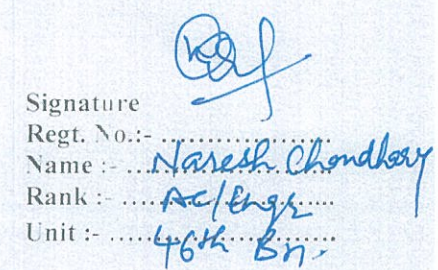 Signature
Regt. No.:- ....................
Name :- Naresh Chondhary
Rank :- AC/Engr
Unit :- 46th Bn.